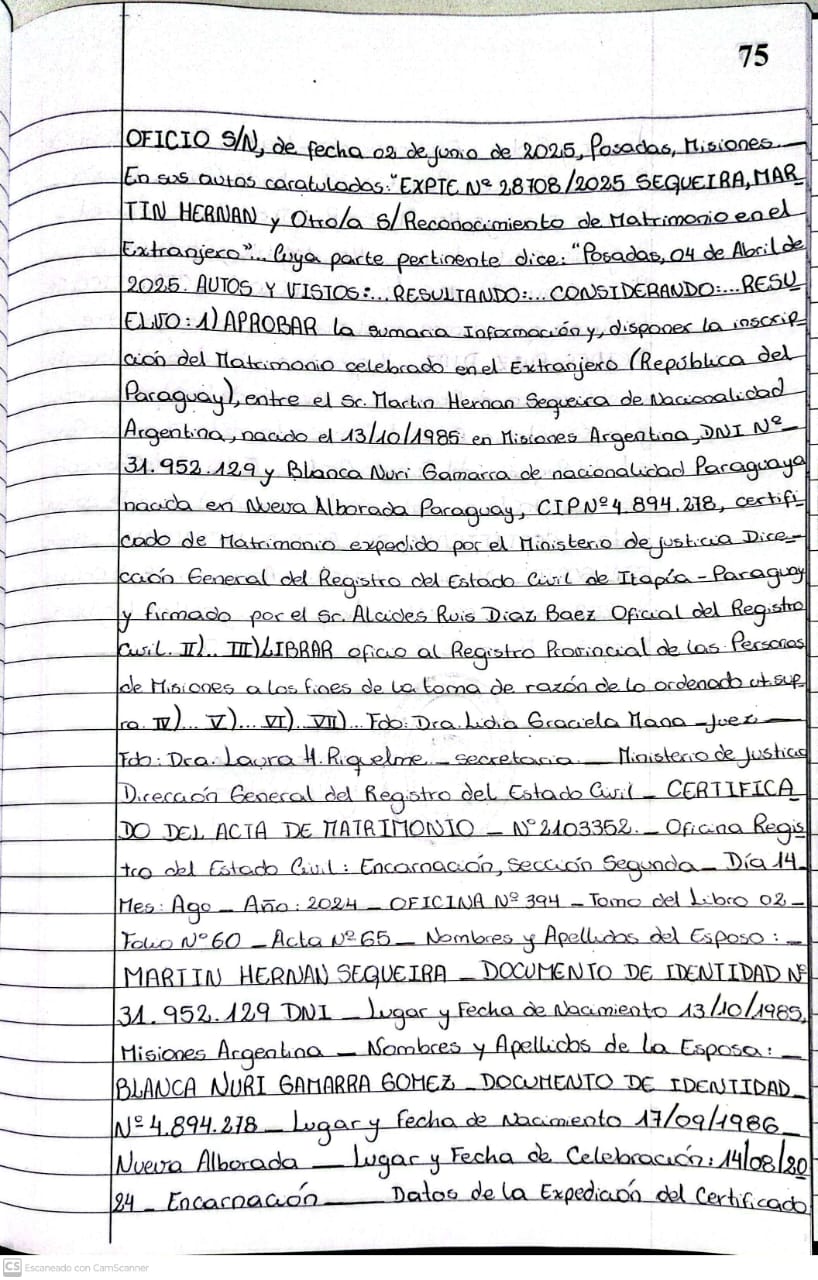 75
OFICIO S/N, de fecha 02 de junio de 2025, Posadas, Misiones.—
En sus autos caratulados: "EXPTE Nº 28708/2025 SEQUEIRA, MAR-
TIN HERNAN y Otro/a S/Reconocimiento de Matrimonio en el
Extranjero"... Cuya parte pertinente dice: "Posadas, 04 de Abril de
2025. AUTOS Y VISTOS:... RESULTANDO:... CONSIDERANDO:... RESU
ELVO: 1) APROBAR la sumaria Información y, disponer la inscrip-
ción del Matrimonio celebrado en el Extranjero (República del
Paraguay), entre el Sr. Martin Hernan Sequeira de Nacionalidad
Argentina, nacido el 13/10/1985 en Misiones Argentina, DNI Nº—
31.952.129 y Blanca Nuri Gamarra de nacionalidad Paraguaya
nacida en Nueva Alborada Paraguay, CIP Nº 4.894.278, certifi-
cado de Matrimonio expedido por el Ministerio de justicia Dire-
cción General del Registro del Estado Civil de Itapúa - Paraguay
y firmado por el Sr. Alcides Ruis Diaz Baez Oficial del Registro
Civil. II)... III) LIBRAR oficio al Registro Provincial de las Personas
de Misiones a los fines de la toma de razón de lo ordenado ut sup-
ra. IV)... V)... VI). VII)... Fdo: Dra. Lidia Graciela Mana - Juez —
Fdo: Dra. Laura H. Riquelme — secretaria — Ministerio de Justicia
Dirección General del Registro del Estado Civil — CERTIFICA
DO DEL ACTA DE MATRIMONIO — Nº 2103352. — Oficina Regis
tro del Estado Civil: Encarnación, Sección Segunda — Día 14—
Mes: Ago — Año: 2024 — OFICINA Nº 394 — Tomo del Libro 02 —
Folio Nº 60 — Acta Nº 65 — Nombres y Apellidos del Esposo: —
MARTIN HERNAN SEQUEIRA — DOCUMENTO DE IDENTIDAD Nº
31.952.129 DNI — Lugar y Fecha de Nacimiento 13/10/1985,
Misiones Argentina — Nombres y Apellidos de la Esposa: —
BLANCA NURI GAMARRA GOMEZ — DOCUMENTO DE IDENTIDAD—
Nº 4.894.278 — Lugar y fecha de Nacimiento 17/09/1986—
Nueva Alborada — Lugar y Fecha de Celebración: 14/08/20
24 — Encarnación — Datos de la Expedición del Certificado
CS Escaneado con CamScanner